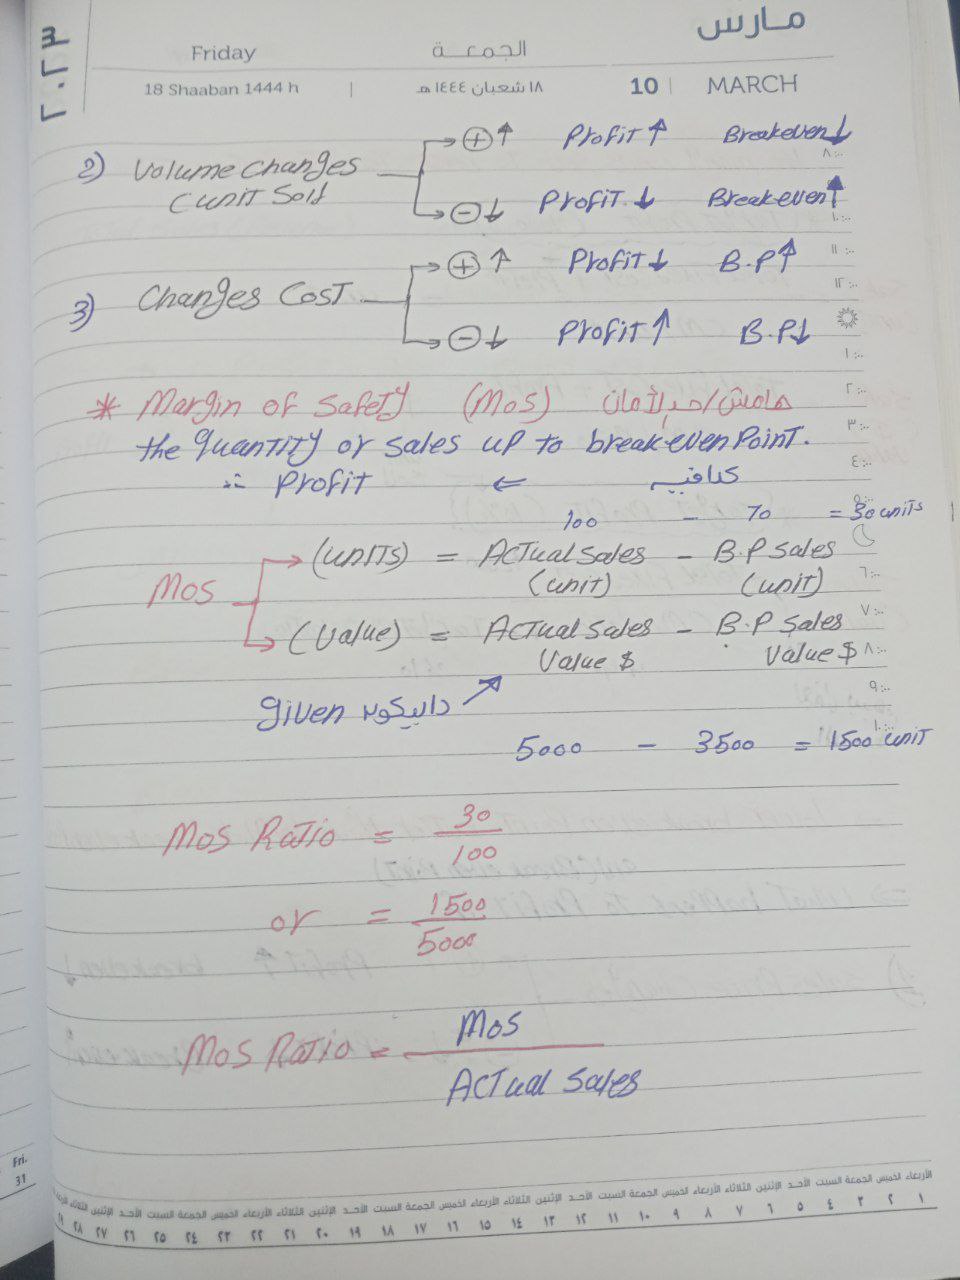 مارس
Friday الجمعة
18 Shaaban 1444 h | ١٨ شعبان ١٤٤٤ هـ 10 | MARCH
٢٠٢٣
2) Volume changes → ⊕ ↑ Profit ↑ Breakeven ↓
(unit Sold → ⊖ ↓ Profit ↓ Breakeven ↑
3) Changes Cost → ⊕ ↑ Profit ↓ B.P ↑
→ ⊖ ↓ Profit ↑ B.P ↓
* Margin of Safety (MOS) هامش/حد الأمان
the quantity or sales up to breakeven Point.
∴ Profit ⇐
100 - 70 = 30 units
MOS → (units) = Actual Sales - B.P Sales
(unit) (unit)
→ (Value) = Actual Sales - B.P Sales
Value $ Value $
given دا بيكون ↗
5000 - 3500 = 1500 unit
MOS Ratio = 30
100
or = 1500
5000
MOS Ratio = MOS
Actual Sales
Fri.
31
الأربعاء الخميس الجمعة السبت الأحد الإثنين الثلاثاء الأربعاء الخميس الجمعة السبت الأحد الإثنين الثلاثاء الأربعاء الخميس الجمعة السبت الأحد الإثنين الثلاثاء الأربعاء الخميس الجمعة السبت الأحد الإثنين الثلاثاء
١ ٢ ٣ ٤ ٥ ٦ ٧ ٨ ٩ ١٠ ١١ ١٢ ١٣ ١٤ ١٥ ١٦ ١٧ ١٨ ١٩ ٢٠ ٢١ ٢٢ ٢٣ ٢٤ ٢٥ ٢٦ ٢٧ ٢٨